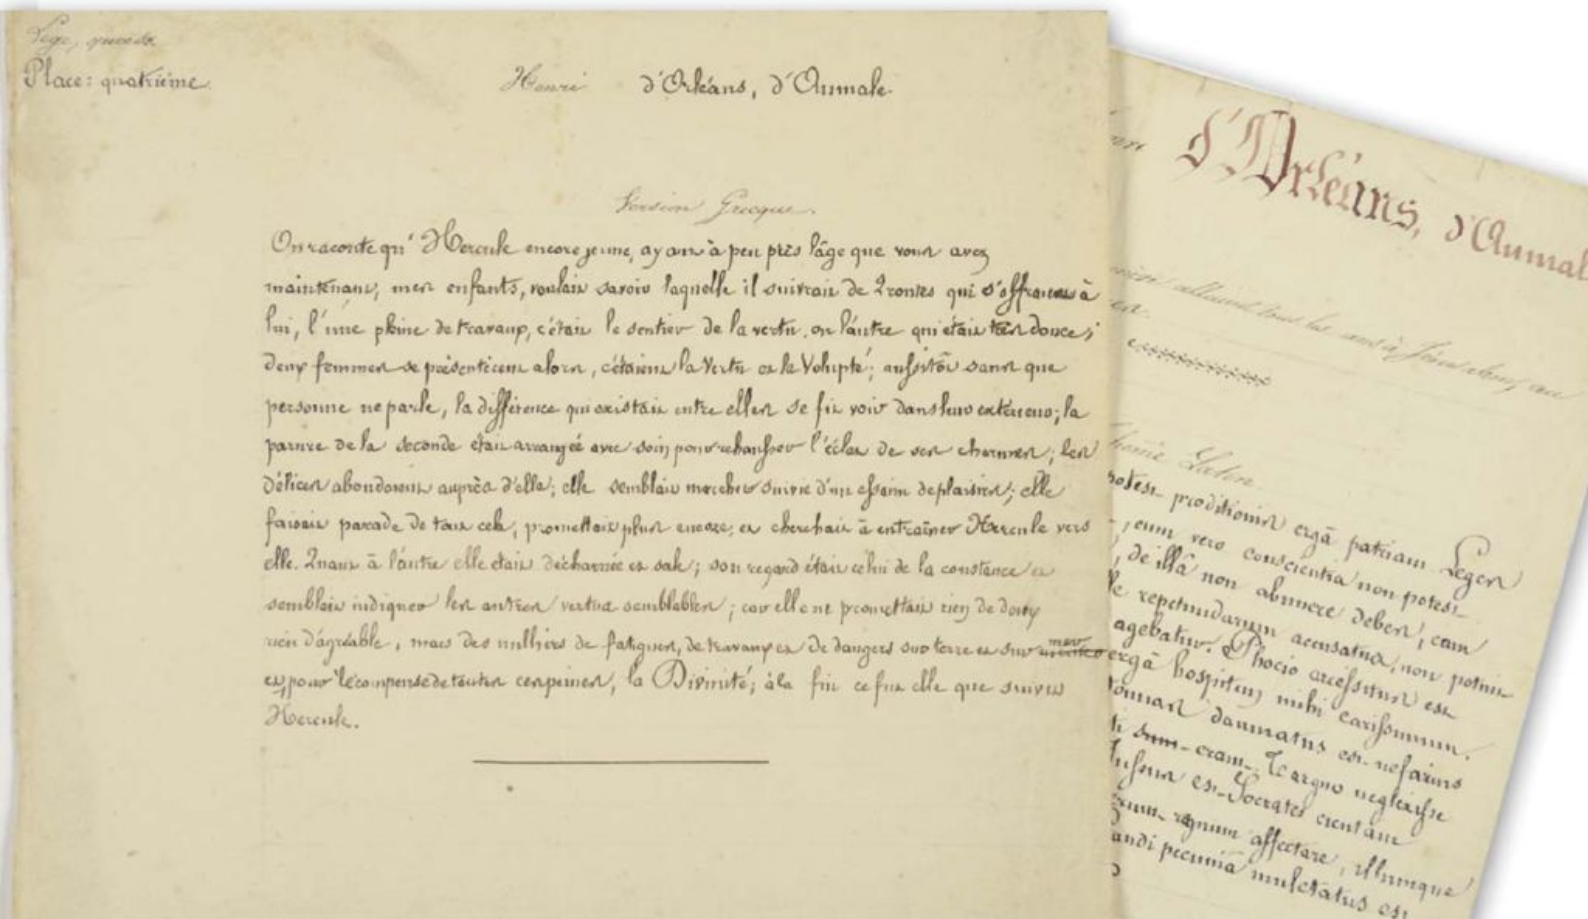 Place: quatrième.
Henri d'Orléans, d'Aumale.
Version Grecque.
On raconte qu'Hercule encore jeune, ayant à peu près l'âge que vous avez
maintenant, mes enfants, voulait savoir laquelle il suivrait de 2 routes qui s'offraient à
lui, l'une pleine de travaux, c'était le sentier de la vertu, ou l'autre qui était très douce;
deux femmes se présentèrent alors, c'étaient la Vertu et la Volupté; aussitôt sans que
personne ne parle, la différence qui existait entre elles se fit voir dans leur extérieur; la
parure de la seconde était arrangée avec soin pour rehausser l'éclat de ses charmes; les
délices abondaient auprès d'elle; elle semblait marcher suivie d'un essaim de plaisirs; elle
faisait parade de tout cela, promettait plus encore, et cherchait à entraîner Hercule vers
elle. Quant à l'autre elle était décharnée et sale; son regard était celui de la constance et
semblait indiquer les autres vertus semblables; car elle ne promettait rien de doux
rien d'agréable, mais des milliers de fatigues, de travaux et de dangers sur terre et sur mer
et, pour récompense de toutes ces peines, la Divinité; à la fin ce fut elle que suivit
Hercule.
d'Orléans, d'Aumal
Thème Latin
potest proditionis ergà patriam Leges
, cum vero conscientia non potest
, de illâ non abutere debes, cum
repetundarum accusatus, non potui
agebatur. Phocio arcessitus est
ergâ hospitem mihi carissimum.
damnatus est nefarius
sum eram. Te arguo neglexisse
Jussus est Socrates cicutam
regnum affectare, illumque
andi pecuniâ mulctatus est